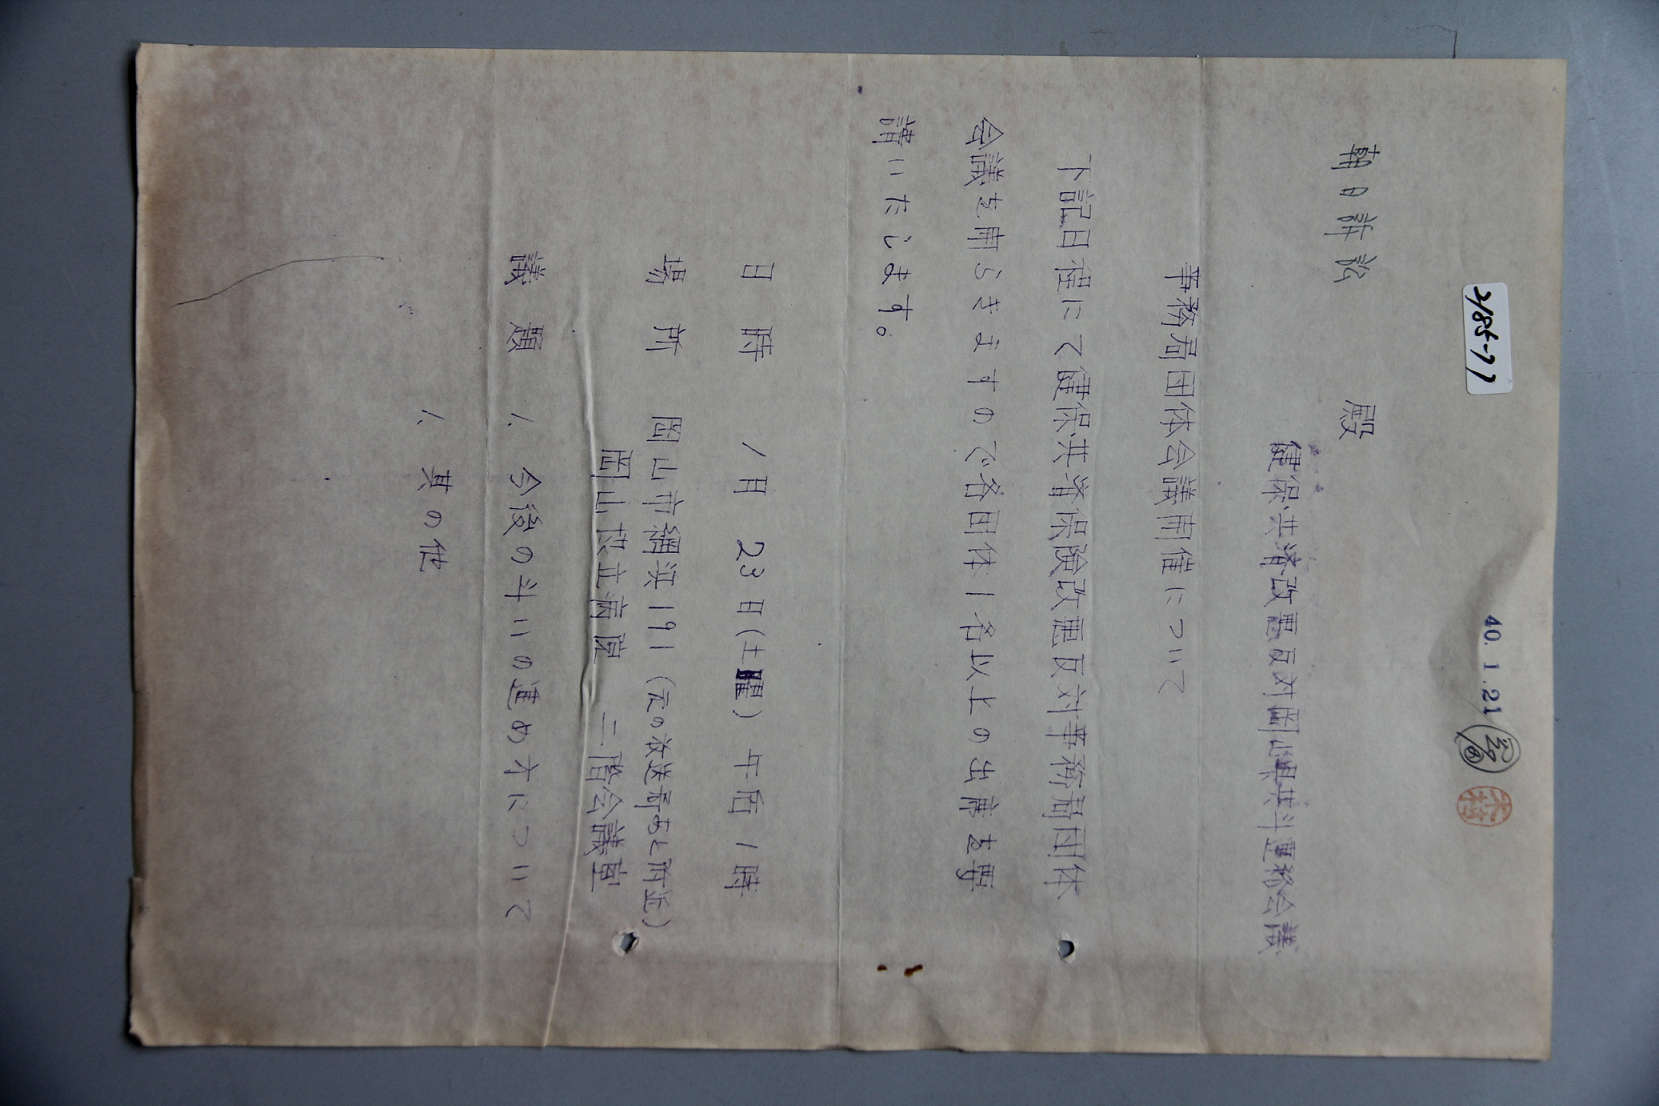 2485-77
40.1.21
木村
朝日訴訟 殿
健保・共済改悪反対岡山県共斗連絡会議
事務局団体会議開催について
下記日程にて健保・共済保険改悪反対事務局団体
会議を開らきますので各団体1名以上の出席を要
請いたします。
日時 1月23日(土曜) 午后1時
場所 岡山市網浜191(元の放送局あと附近)
岡山協立病院 二階会議室
議題 1. 今後の斗いの進め方について
1. 其の他